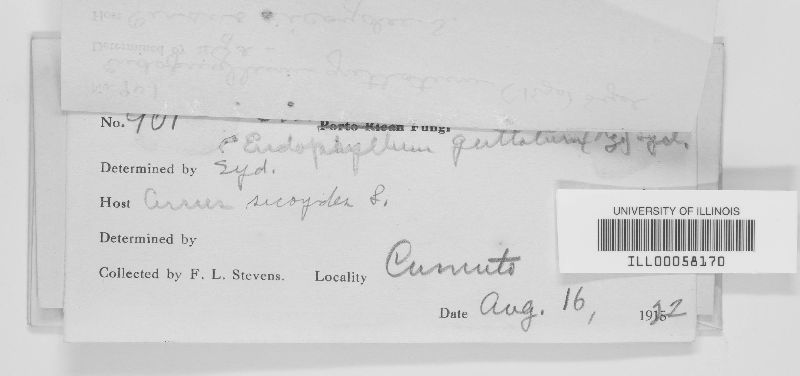 Host
Determined by
No. 901
Porto Rican Fungi
Endophyllum guttatum Syd.
Determined by Syd.
Host Cissus sicoydes L.
Determined by
Collected by F. L. Stevens. Locality Cumuto
Date Aug. 16, 1922
UNIVERSITY OF ILLINOIS
ILL00058170